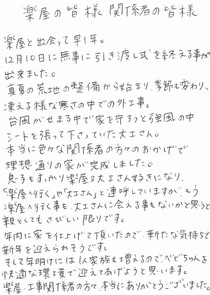 楽屋の皆様 関係者の皆様
楽屋と出会って早1年。
12月10日に無事に引き渡し式を終える事が
出来ました。
真夏の荒土地の整備から始まり、季節も変わり、
凍える様な寒さの中での外工事。
台風がせまる中で家を守ろうと強風の中
シートを張って下さっていた大工さん。
本当に色々な関係者の方々のおかげで
理想通りの家が完成しました。
息子もすっかり楽屋と大工さん好きになり、
「楽屋へ行く」や「大工さん」と連呼していますが、もう
楽屋へ行く事も、大工さんに会える事もないかと思うと
親としてもさびしい限りです。
年内に家を仕上げて頂いたので、新たな気持ちで
新年を迎えられそうです。
そして年明けには家族も増えるので、べびちゃんを
快適な環境で迎えてあげようと思います。
楽屋、工事関係者の方々、本当にありがとうございました。